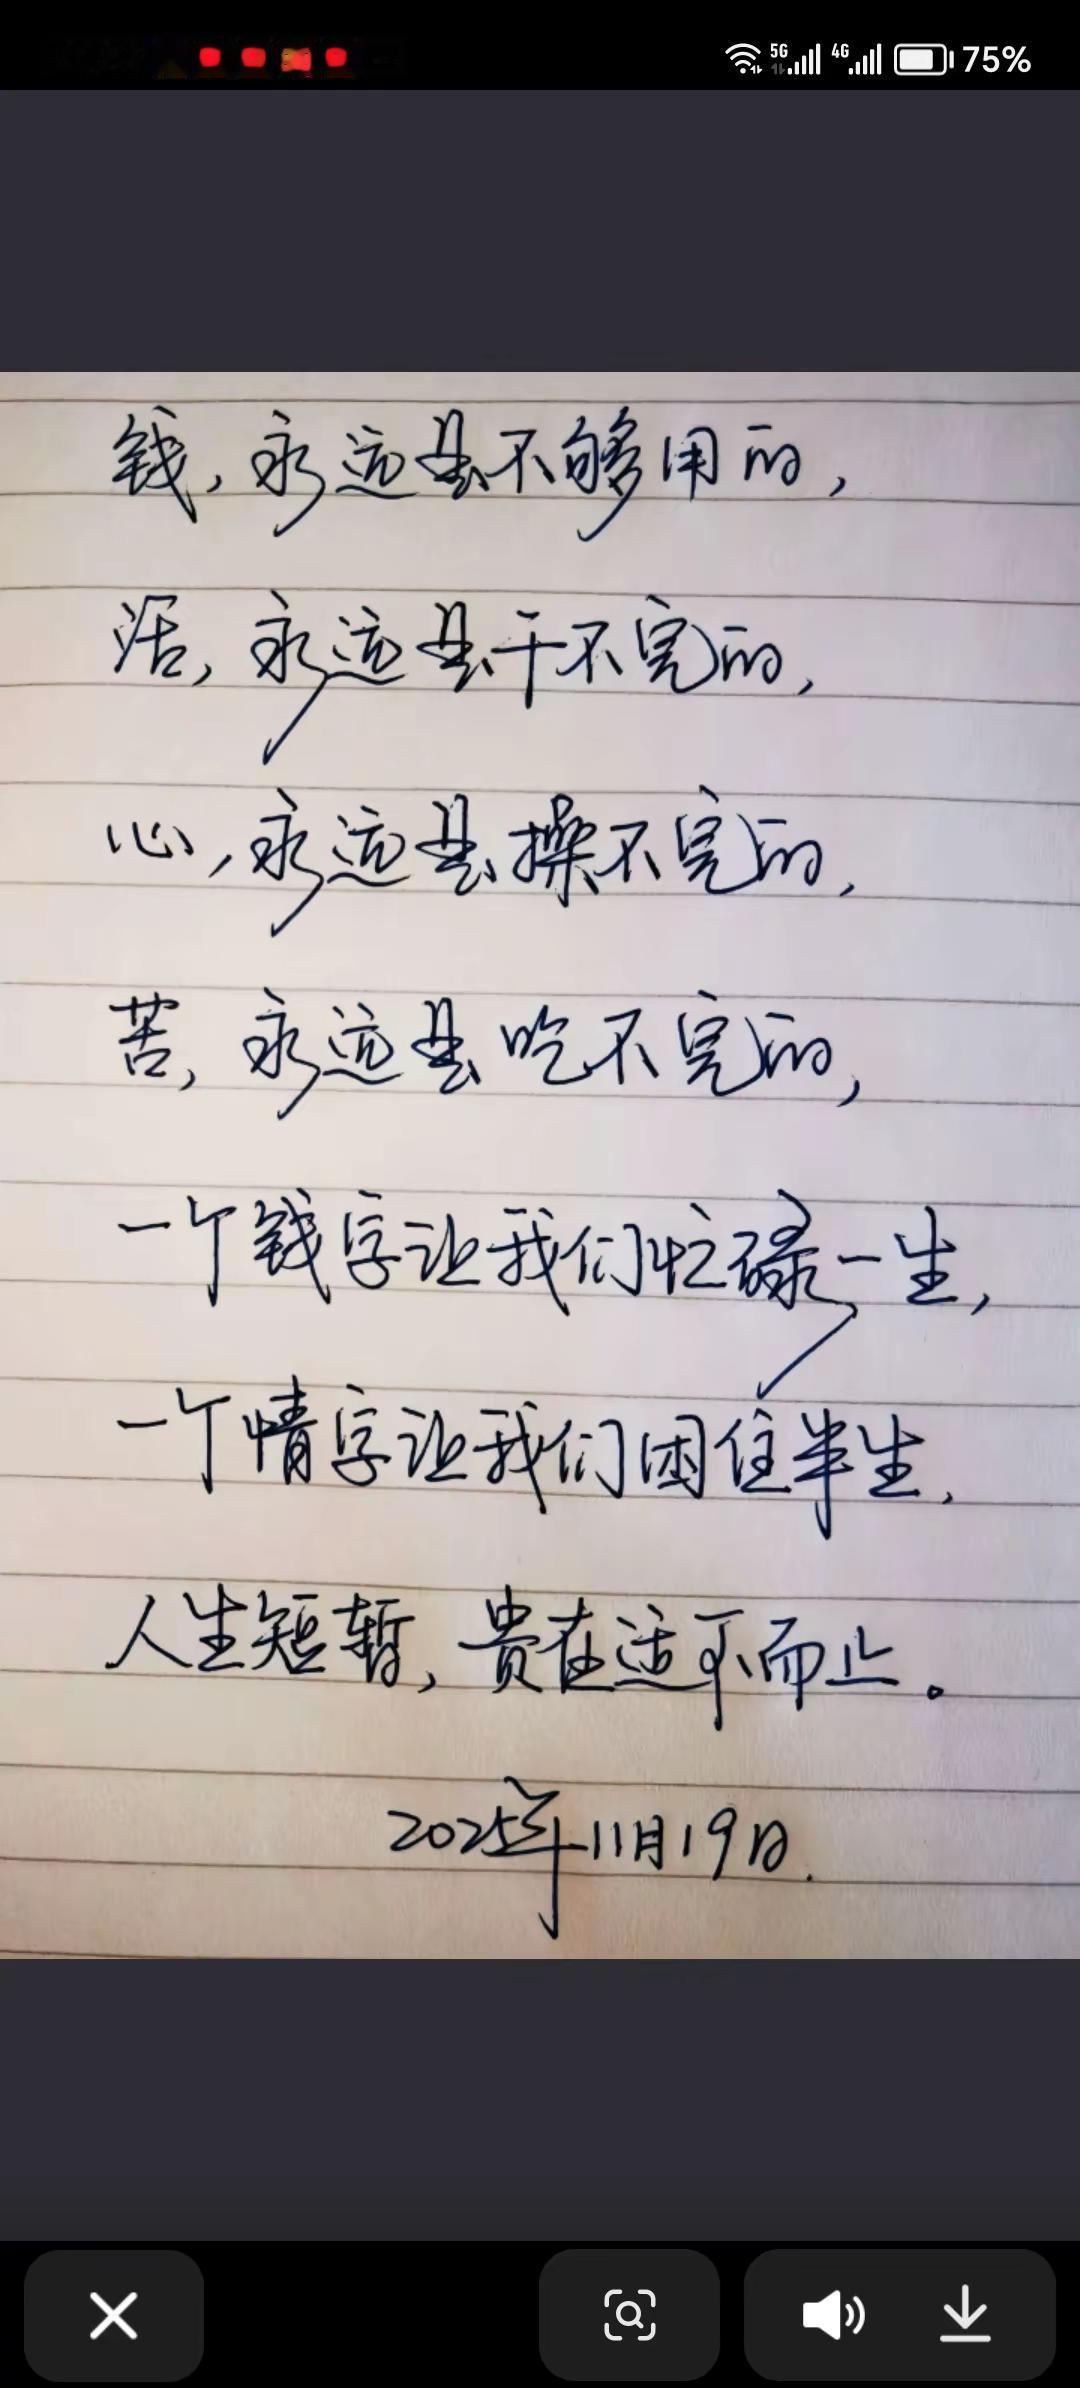 5G 4G 75%
钱,永远是不够用的,
活,永远是干不完的,
心,永远是操不完的,
苦,永远是吃不完的,
一个钱字让我们忙碌一生,
一个情字让我们困住半生,
人生短暂,贵在适可而止。
2025年11月19日.